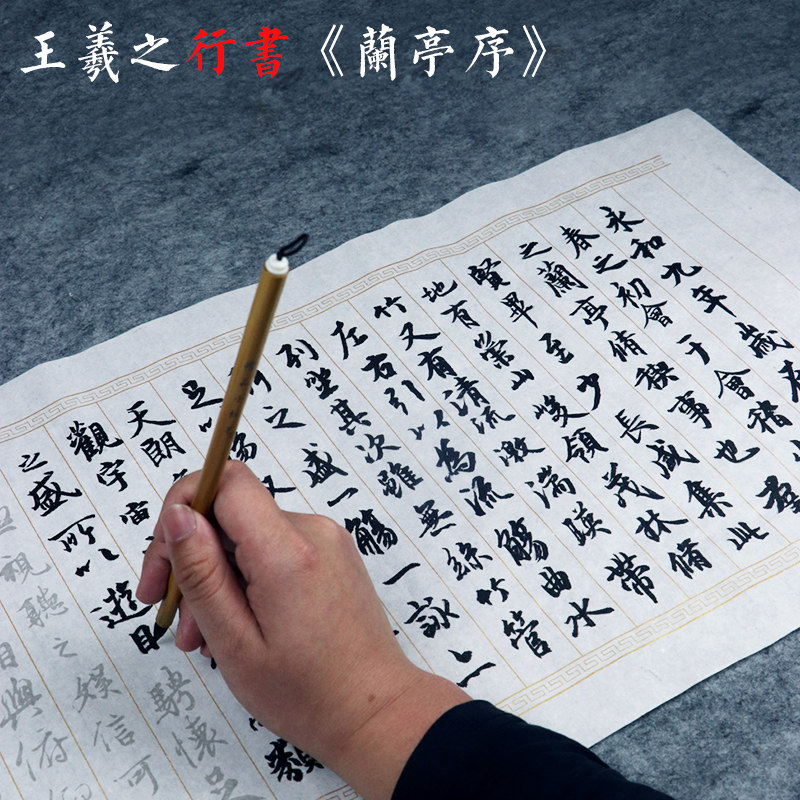 王羲之行書《蘭亭序》
永和九年歲在
春之初會于會稽
之蘭亭脩稧事也羣
賢畢至少長咸集此
地有崇山峻領茂林脩
竹又有清流激湍暎帶
左右引以為流觴曲水
列坐其次雖無絲竹管
之盛一觴一詠
足以
天朗
觀宇宙
之盛所以遊目騁懷足
視聽之娛信可
與俯仰